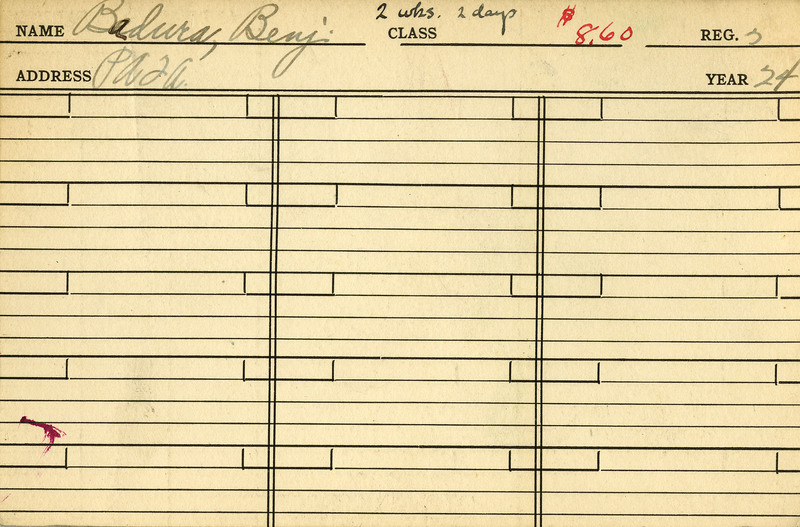 2 wks. 2 days
NAME Badura, Benj. CLASS $8.60 REG. 5
ADDRESS P.A.F.A. YEAR 24